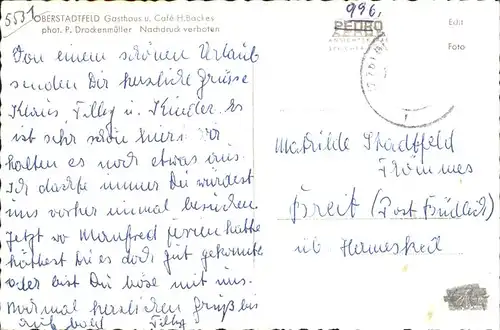 5531
OBERSTADTFELD Gasthaus u. Café H. Backes
phot. P. Drockenmüller Nachdruck verboten
Von einem schönen Urlaub
senden Dir herzliche Grüsse
Klaus, Tilly u. Kinder. Es
ist sehr schön hier. Wir
halten es noch etwas aus.
Ich dachte immer Du würdest
uns vorher einmal besuchen
Jetzt wo Manfred ferien hatte
hättest hies doch gut gekonnt
oder bist Du böse mit uns.
Nochmal herzlichen Gruß bis
auf bald Tilly
996,
PEDRO
Edit
Foto
Mathilde Stadtfeld
Frömmes
Breit (Post Büdlich)
üb. Hermeskeil